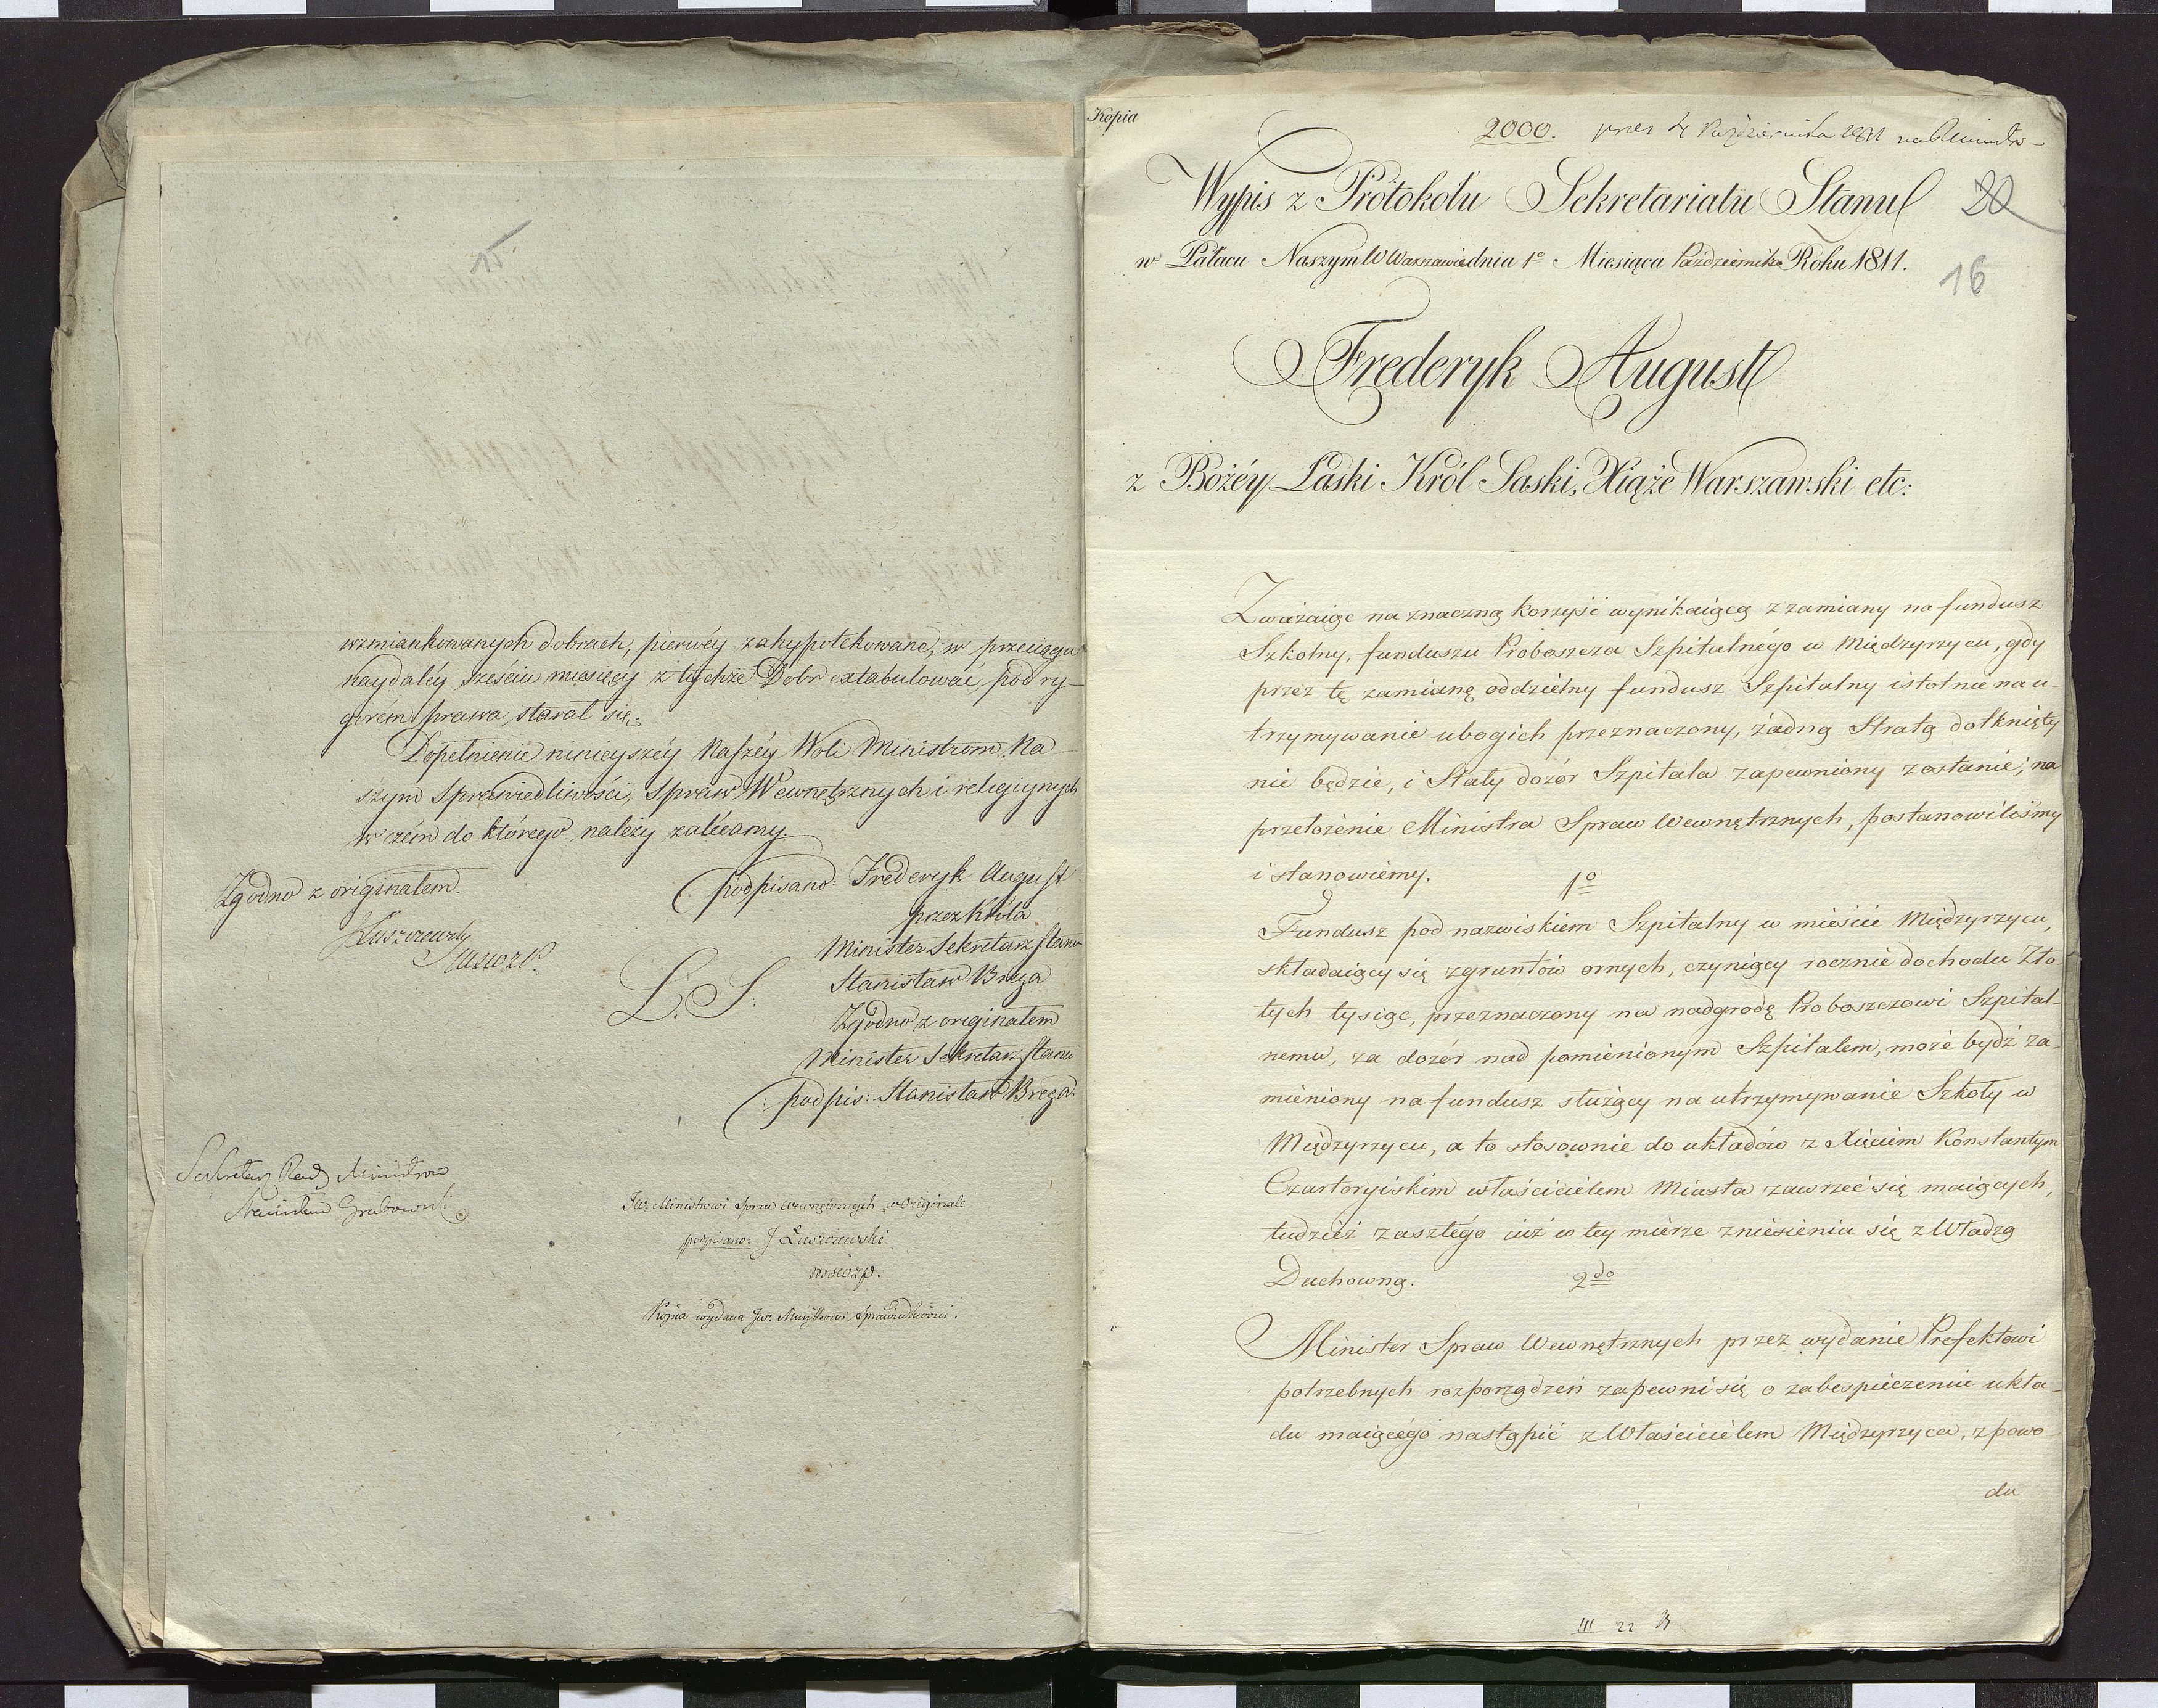 15
wzmiankowanych dobrach, pierwéy zahypotekowane, w przeciągu
naydaléy sześciu miesięcy z tychże Dobr extabulować, pod ry-
gorém prawa, starał się.
Dopełnienie ninieyszéy Naszéy Woli Ministrom Na-
szym Sprawiedliwości, Spraw Wewnętrznych i religiynych
w czém do którego należy zalécamy.
Zgodno z originałem
(podpisano: Frederyk August
przez Króla
Minister Sekretarz Stanu
Stanisław Breza
L. S.
Zgodno z originałem
Minister Sekretarz Stanu
(: podpis: Stanisław Breza
Sekretarz Rady Ministrow
Stanisław Grabowski
Jw. Ministrowi Spraw Wewnętrznych w Originale
podpisano: J Łuszczewski
Kopia wydana Jw. Ministrowi Sprawiedliwości.
Kopia
2000. prez 4 Października 1811
Wypis z Protokołu Sekretariatu Stanu
20
w Pałacu Naszym w Warszawie dnia 1o Miesiąca Październik Roku 1811.
16
Frederyk August
z Bożéy Łaski Król Saski, Xiąże Warszawski etc:
Zważaiąc na znaczną korzyść wynikaiącą z zamiany na fundusz
Szkolny, funduszu Proboszcza Szpitalnégo w Międzyrzycu, gdy
przez tę zamianę oddzielny fundusz Szpitalny istotnie na u-
trzymywanie ubogich przeznaczony, żadną Stratą dotknięty
nie będzie, i Stały dozór Szpitala zapewniony zostanie; na
przełożenie Ministra Spraw Wewnętrznych, postanowiliśmy
i stanowiemy.
1o
Fundusz pod nazwiskiem Szpitalny w mieście Międzyrzycu,
składaiący się z gruntów ornych, czyniący rocznie dochodu Zło
tych tysiąc, przeznaczony na nadgrodę Proboszczowi Szpital-
nemu, za dozór nad pomienionym Szpitalem, może bydź za-
mieniony na fundusz służący na utrzymywanie Szkoły w
Międzyrzycu, a to stosownie do układów z Xięciem Konstantym
Czartoryiskim właścicielem Miasta zawrzeć się maiących,
tudzież zaszłégo iuż w tey mierze zniesienia się z Władzą
Duchowną.
2do
Minister Spraw Wewnętrznych przez wydanie Prefektowi
potrzebnych rozporządzeń zapewni się o zabespieczenie ukła-
du maiącégo nastąpić z Właścicielem Międzyrzyca, z powo
du
III 22